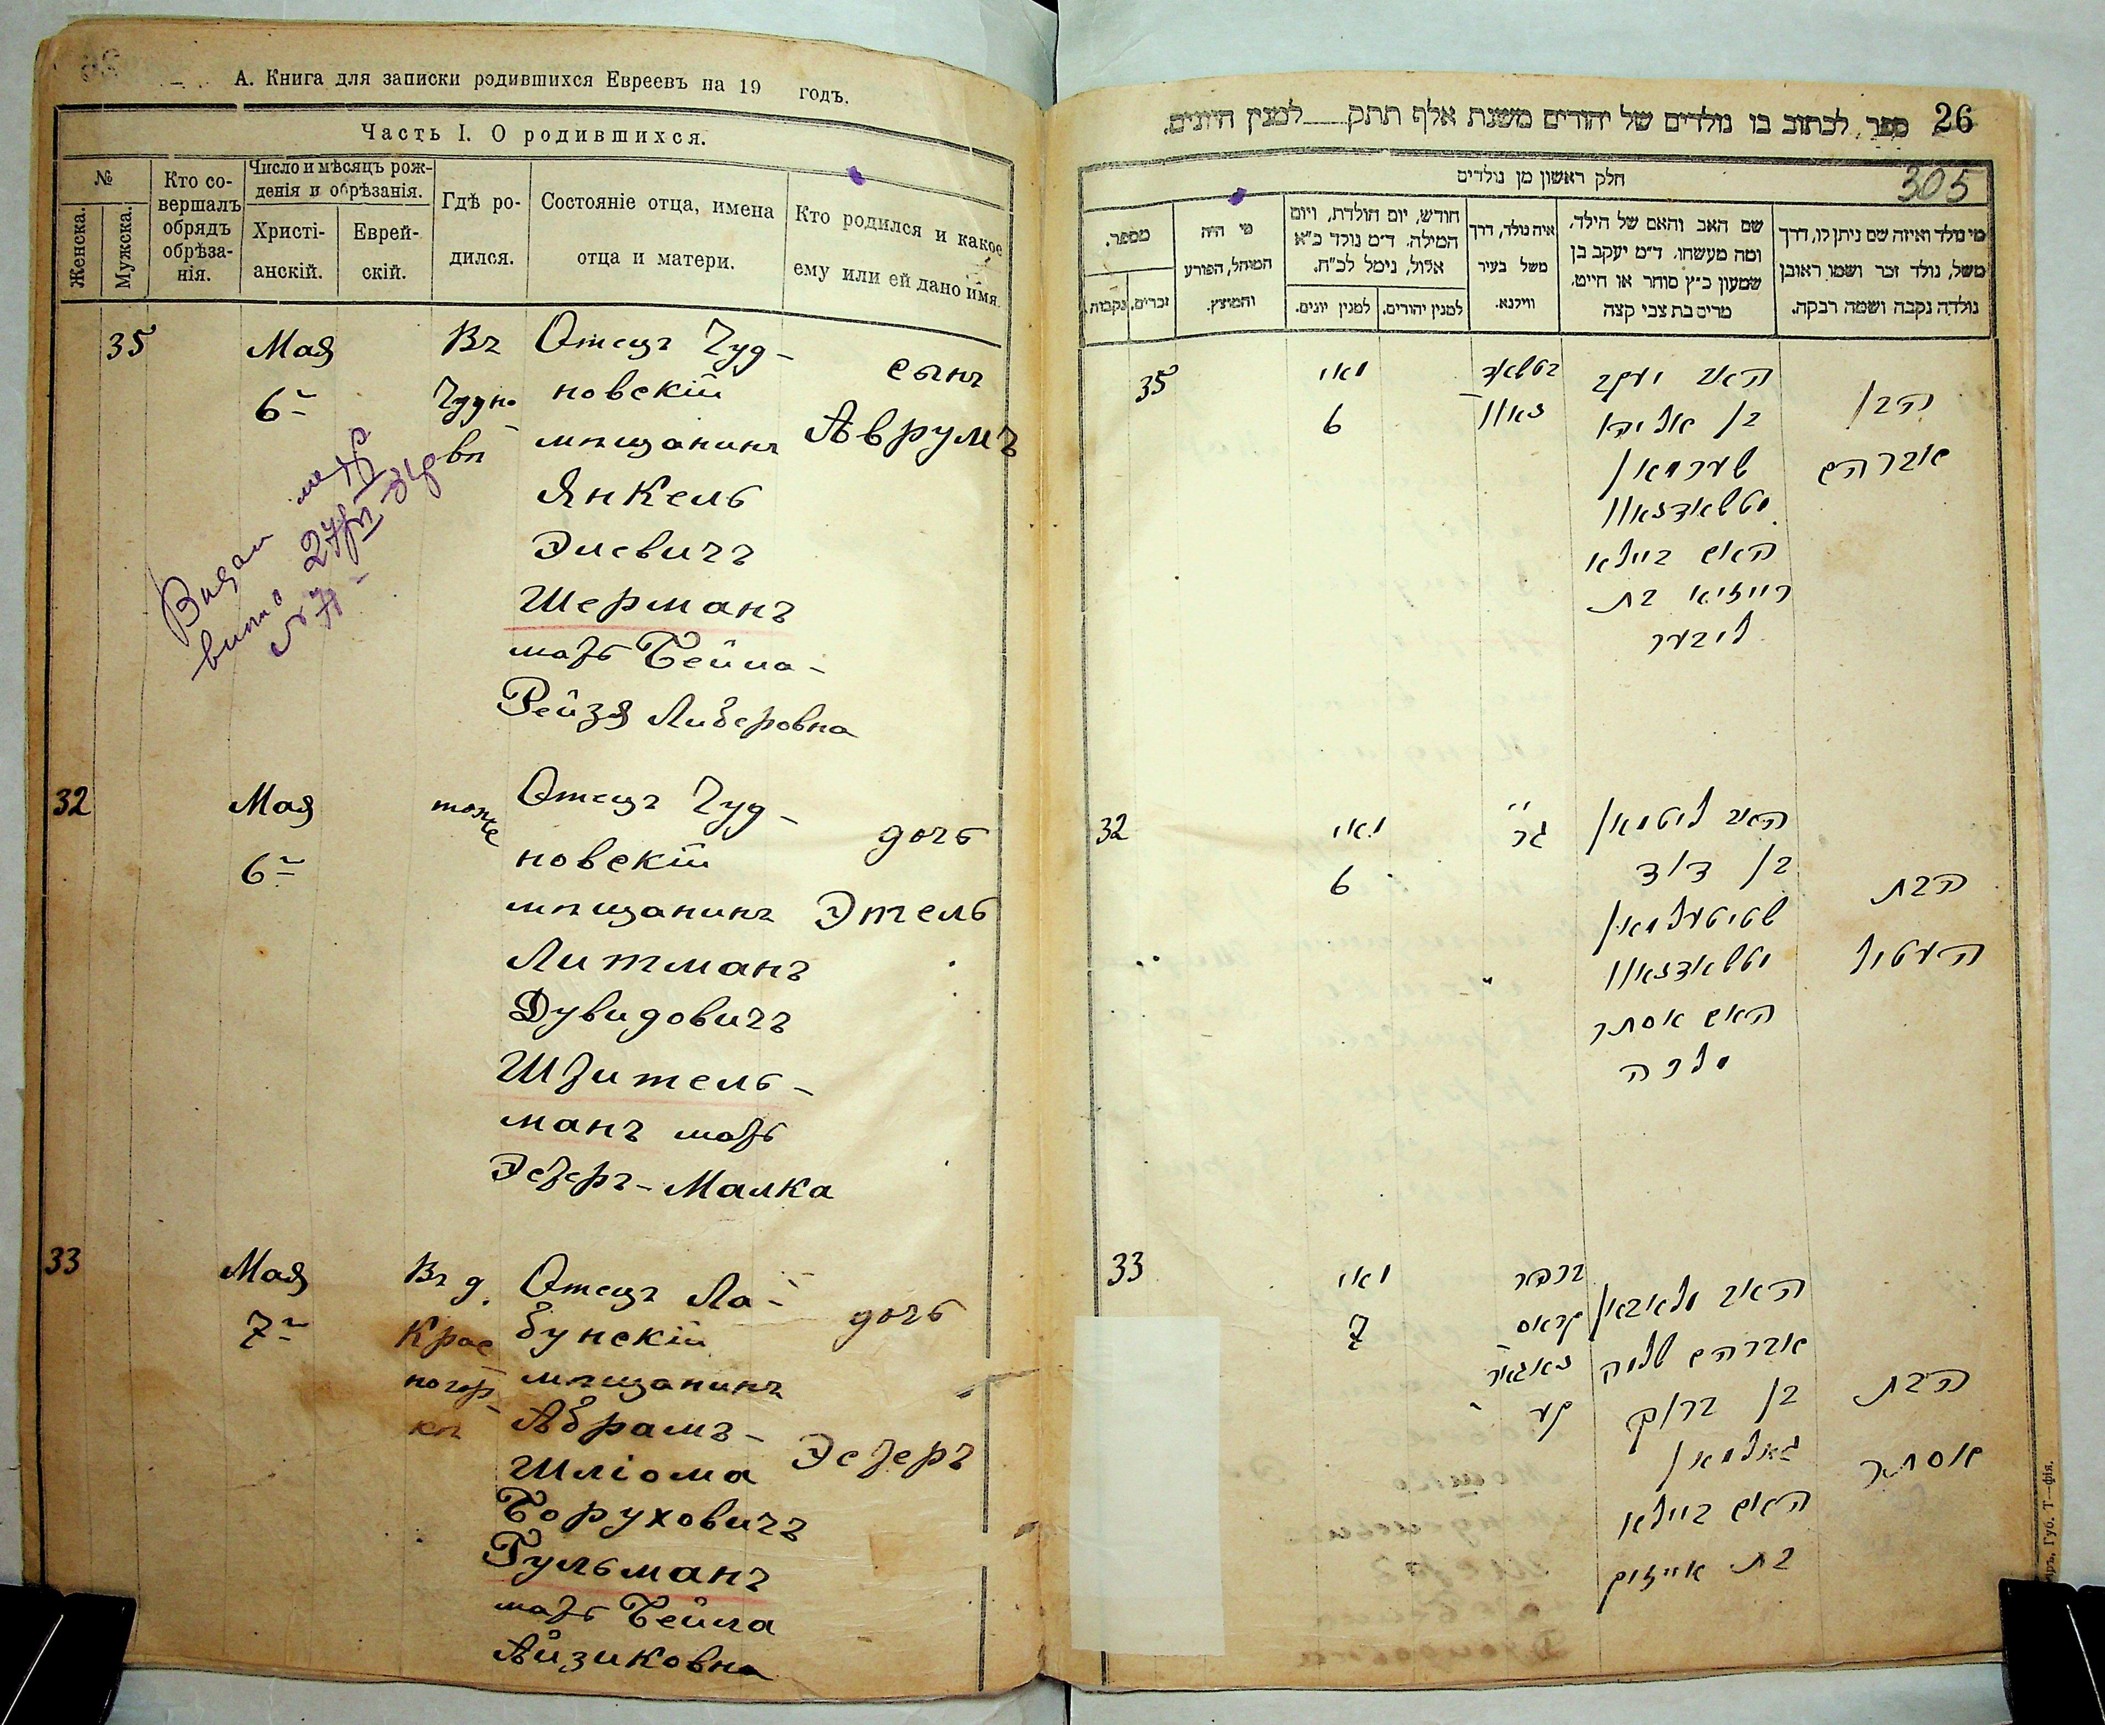 А. Книга для записки родившихся Евреевъ на 19 годъ.
Часть I. О родившихся.
№
Женска.
Мужска.
Кто со-
вершалъ
обрядъ
обрѣза-
нія.
Число и мѣсяцъ рож-
денія и обрѣзанія.
Христі-
анскій.
Еврей-
скій.
Гдѣ ро-
дился.
Состояніе отца, имена
отца и матери.
Кто родился и какое
ему или ей дано имя.
35
Мая
6
Въ
Чудно
вѣ
Отецъ Чуд-
новскій
мѣщанинъ
Янкель
Элевичъ
Шерманъ
мать Бейла-
Рейзя Либеровна
сынъ
Аврумъ
32
Мая
6
тоже
Отецъ Чуд-
новскій
мѣщанинъ
Литманъ
Дувидовичъ
Штитель-
манъ мать
Эстеръ-Малка
дочь
Этель
33
Мая
7
Въ д.
Крас
ногор
кѣ
Отецъ Ла-
бунскій
мѣщанинъ
Абрамъ-
Шліома
Боруховичъ
Гульманъ
мать Бейла
Айзиковна
дочь
Эстеръ
26
ספר, לכתוב בו נולדים של יהודים משנת אלף תתק למנין היונים.
305
חלק ראשון מן נולדים
מספר.
זכרים,
נקבות.
מי היה
המוהל, הפורע
והמוצץ.
חודש, יום הולדת, ויום
המילה. ד״מ נולד כ״א
אלול, נימל לכ״ח.
למנין יונים.
למנין יהודים.
איה נולד, דרך
משל בעיר
ווילנא.
שם האב והאם של הילד,
ומה מעשהו. ד״מ יעקב בן
שמעון כ״ץ סוחר או חייט,
מרים בת צבי קצה
מי נולד ואיזה שם ניתן לו, דרך
משל, נולד זכר ושמו ראובן
נולדה נקבה ושמה רבקה.
35
מאי
6
האב יעקב
בן אליהו
שערמאן
האם ביילא
רייזיא בת
ליבער
הבן
אברהם
32
מאי
6
האב ליטמאן
בן דוד
שטיטעלמאן
האם אסתר
מלכה
הבת
העטיל
33
מאי
7
בכפר
קראס
אברהם שלמה
בן ברוך
גאלמאן
האם ביילא
בת אייזיק
הבת
אסתר